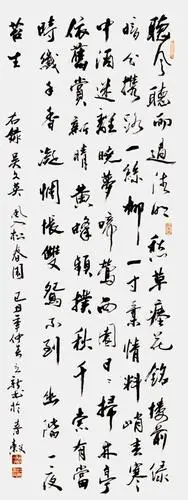 聽風聽雨過清明愁草瘞花銘樓前綠
暗分攜路一絲柳一寸柔情料峭春寒
中酒迷離曉夢啼鶯西園日日掃林亭
依舊賞新晴黃蜂頻撲秋千索有當
時纖手香凝惆悵雙鴛不到幽階一夜
苔生
右錄吳文英風入松春園己丑年仲春書於春穀